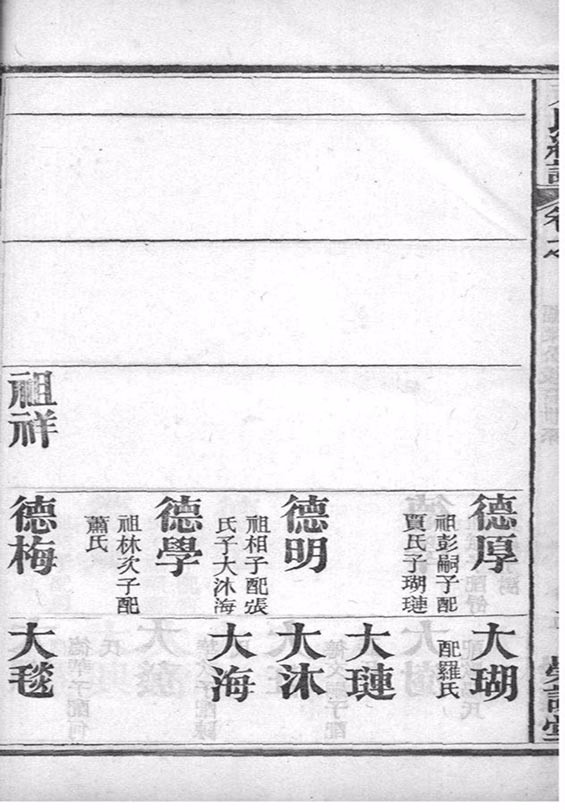 德厚
祖彭嗣子配
賈氏子瑚璉
德明
祖相子配張
氏子大沐海
德學
祖林次子配
蕭氏
祖祥
德梅
大瑚
配羅氏
大璉
大沐
大海
大毯